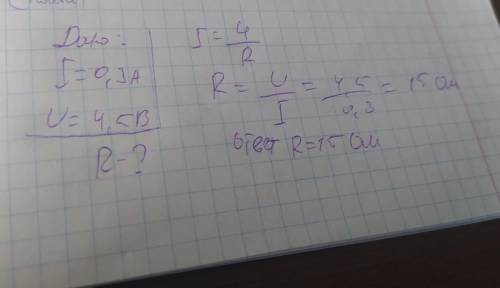 Дано:
I = 0,3А
U = 4,5В
R - ?
I = U/R
R = U/I = 4,5/0,3 = 15 Ом
Ответ R = 15 Ом